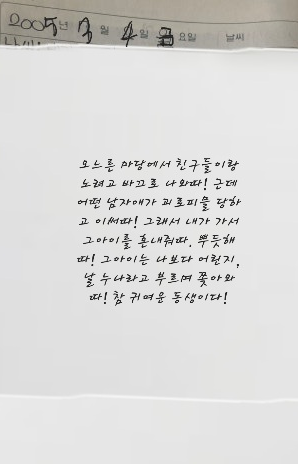 2005년 3월 4일 금요일 날씨
오느른 마당에서 친구들이랑
노려고 바끄로 나와따! 근데
어떤 남자애가 괴로피믈 당하
고 이써따! 그래서 내가 가서
그아이를 혼내줘따. 뿌듯해
따! 그아이는 나보다 어린지,
날 누나라고 부르며 쫓아와
따! 참 귀여운 동생이다!